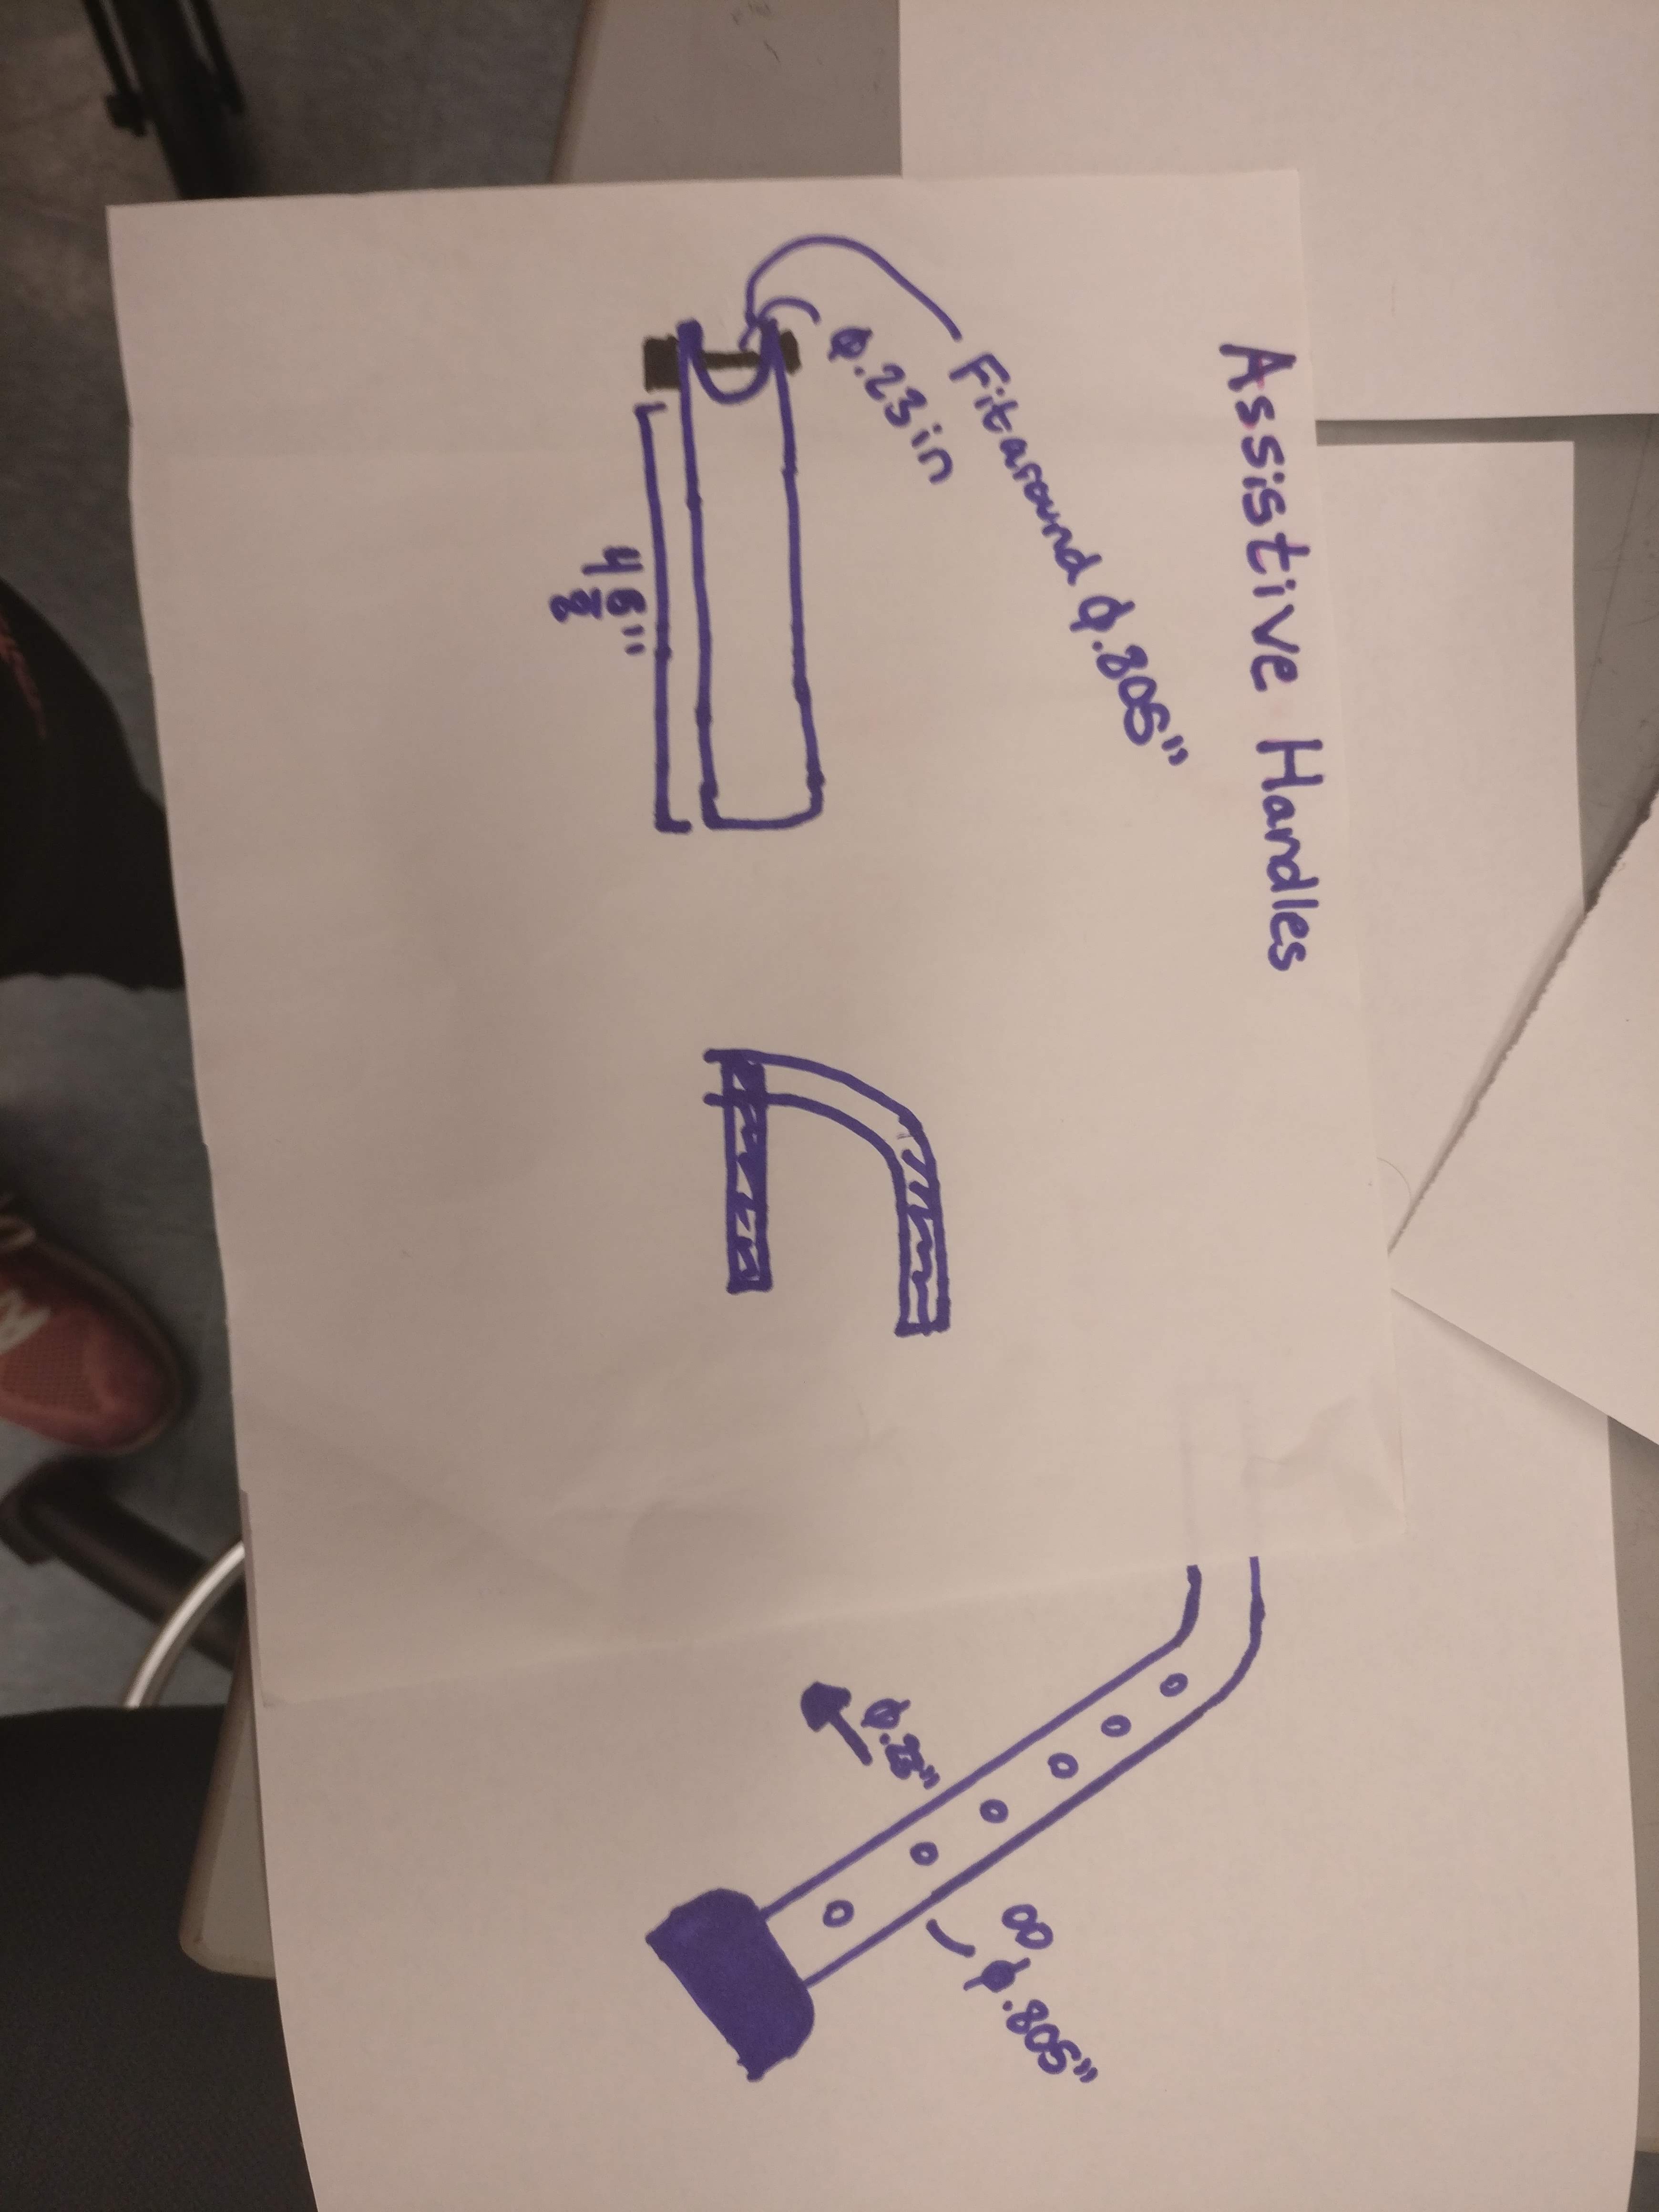 Assistive Handles
Fit around φ.805"
φ.23in
4 6"
8
8 φ.805"